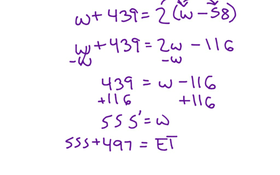 w + 439 = 2(w - 58)
w + 439 = 2w - 116
-w -w
439 = w - 116
+116 +116
555 = w
555 + 497 = ET